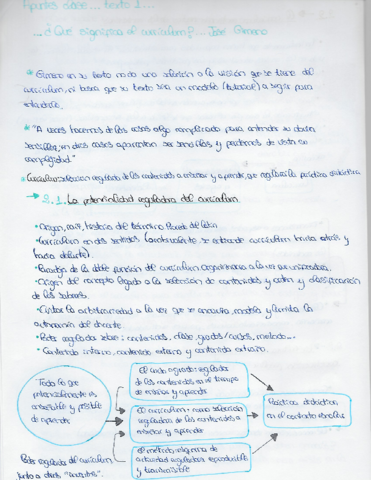 Apuntes clase... texto 1...
...¿Qué significa el curriculum?... José Gimeno
* Gimeno en su texto no da una solución a la visión que se tiene del
curriculum, ni busca que su texto sea un modelo (tutorial) a seguir para
* "A veces hacemos de las cosas algo complicado para entender su
en otros casos aparentan ser sencillas y perdemos de vista su
complejidad."
* Curriculum: selección regulada de los contenidos a enseñar y aprender, que regulan la práctica didáctica
→ 2.1. La potencialidad reguladora del curriculum
• Origen, raíz, historia del término Puede del latín
• Curriculum en dos sentidos (continuamente se entiende curriculum hacia atrás y
hacia delante).
• Paradoja de la doble función del curriculum organizador a la vez que unificador.
• Origen del concepto ligado a la selección de contenidos y orden y clasificación
de los saberes.
• Evitar la arbitrariedad a la vez que se encauza, modela y limita la
autonomía del docente.
• Poder regulador sobre: contenidos, clase, grados/cursos, método...
• Contenido interno, contenido externo y contenido
Todo lo que
potencialmente es
enseñable y posible
de aprender
El orden segundo regulador
de los contenidos en el tiempo
de enseñar y aprender
El curriculum: como selección
reguladora de los contenidos a
enseñar y aprender
El método, esquema de
actividad regulada reproducible
y transmisible
Práctica didáctica
en el contexto escolar
Poder regulador del curriculum
junto a otros "inventos".